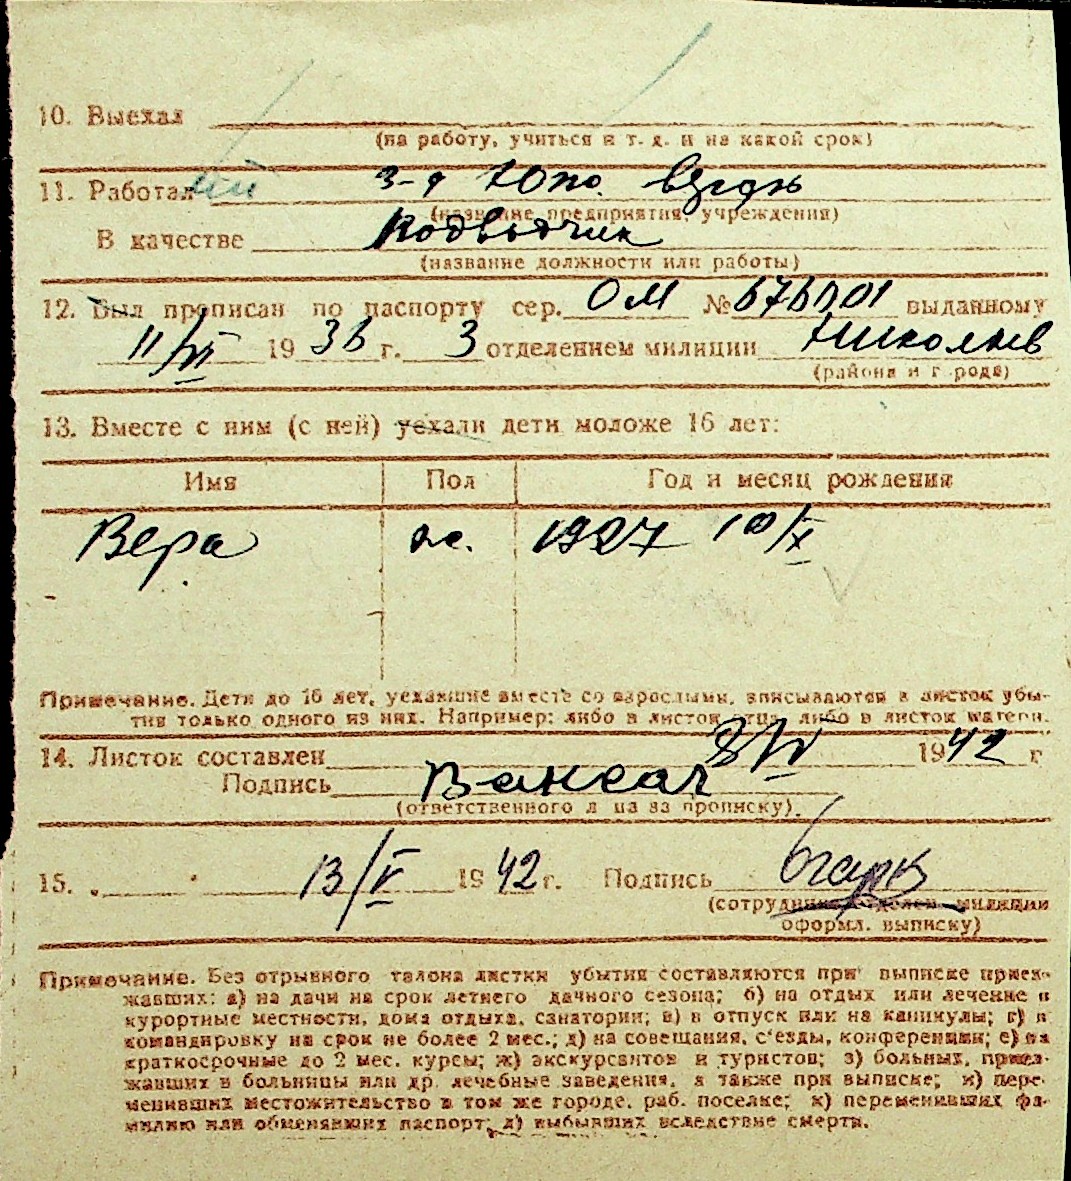 10. Выехал
(на работу, учиться и т. д. и на какой срок)
11. Работал
(название предприятия, учреждения)
В качестве
(название должности или работы)
12. Был прописан по паспорту сер. ОМ № выданному
11/VI 1936 г. 3 отделением милиции Николаев
(района и города)
13. Вместе с ним (с ней) уехали дети моложе 16 лет:
Имя Пол Год и месяц рождения
Вера ж. 1927 10/X
Примечание. Дети до 16 лет, уехавшие вместе со взрослыми, вписываются в листок убы-
тия только одного из них. Например: либо в листок отца, либо в листок матери.
14. Листок составлен 8/IV 1942 г
Подпись
(ответственного лица за прописку).
15. 13/V 1942 г. Подпись
(сотрудника отделен. милиции
оформл. выписку)
Примечание. Без отрывного талона листки убытия составляются при выписке приез-
жавших: а) на дачи на срок летнего дачного сезона; б) на отдых или лечение в
курортные местности, дома отдыха, санатории; в) в отпуск или на каникулы; г) в
командировку на срок не более 2 мес.; д) на совещания, с'езды, конференции; е) на
краткосрочные до 2 мес. курсы; ж) экскурсантов и туристов; з) больных, приез-
жавших в больницы или др. лечебные заведения, а также при выписке; и) пере-
менивших местожительство в том же городе, раб. поселке; к) переменивших фа-
милию или обменявших паспорт; л) выбывших вследствие смерти.